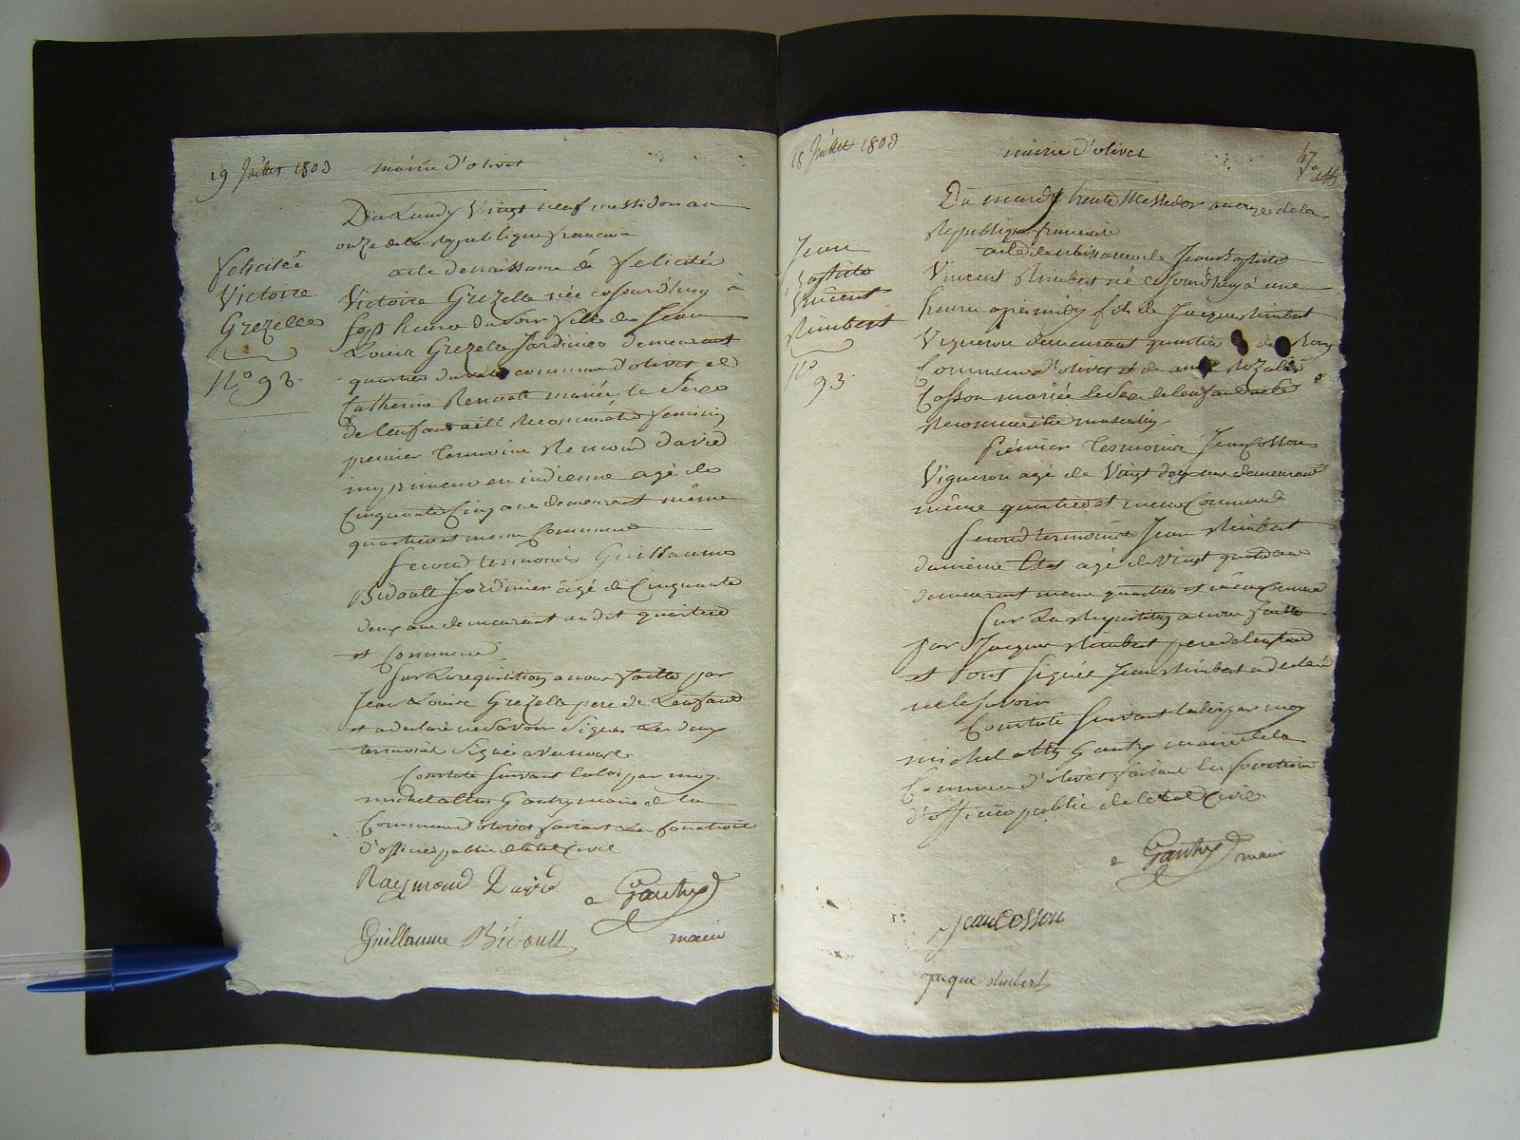 19 Juillet 1803 mairie d'olivet
Du Lundy Vingt neuf messidor an
onze de la Republique francaise
Felicité
Victoire
Grezelle
N° 93.
acte de naissance de Felicité
Victoire Grezelle née cejourdhuy à
sept heure du soir fille de Jean
Louis Grezelle Jardinier demeurant
quartier du commune d'olivet et
Catherine Renault mariée le Sexe
de lenfant a été Reconnu etre feminin
premier temoin Remond david
imprimeur en indienne agé de
Cinquante Cinq ans demeurant même
quartier et meme Commune
Second temoins Guillaume
Bidault Jardinier agé de Cinquante
deux ans demeurant au dit quartier
et Commune
Sur la requisition a nous faitte par
Jean Louis Grezelle pere de Lenfant
et a declaré ne Savoir Signer Les deux
temoins Signé avec nous
Constaté Suivant la loi par moy
michel Gauthy maire de la
Commune d'olivet faisant les fonction
d'officier public de letat Civil
Raymond David a Gauthy
Guillaume Bidault maire
18 Juillet 1803 mairie d'olivet
67
Du mardy trente Messidor an onze de la
Republique francaise
Jean
Baptiste
Vincent
Rimbert
N°
93.
acte de naissance de Jean Baptiste
Vincent Rimbert né cejourdhuy à une
heure apres midy fils de Jacque Rimbert
Vigneron demeurant quartier du
Commune d'olivet et de Rozalie
Cosson mariée le Sexe de lenfant a été
Reconnu etre masculin
Premier temoins Jean Cosson
Vigneron agé de Vingt ans demeurant
même quartier et meme Commune
Second temoins Jean Rimbert
du même Etat agé de Vingt quatre ans
demeurant meme quartier et meme Commune
Sur La Requisition a nous faitte
par Jacque Rimbert pere de lenfant
et ont Signée Jean Rimbert a declaré
ne le Savoir
Constaté Suivant la loi par moy
michel Gauthy maire de la
Commune d'olivet faisant les fonction
d'officier public de letat Civil
a Gauthy maire
jean cosson
jaque rimbert